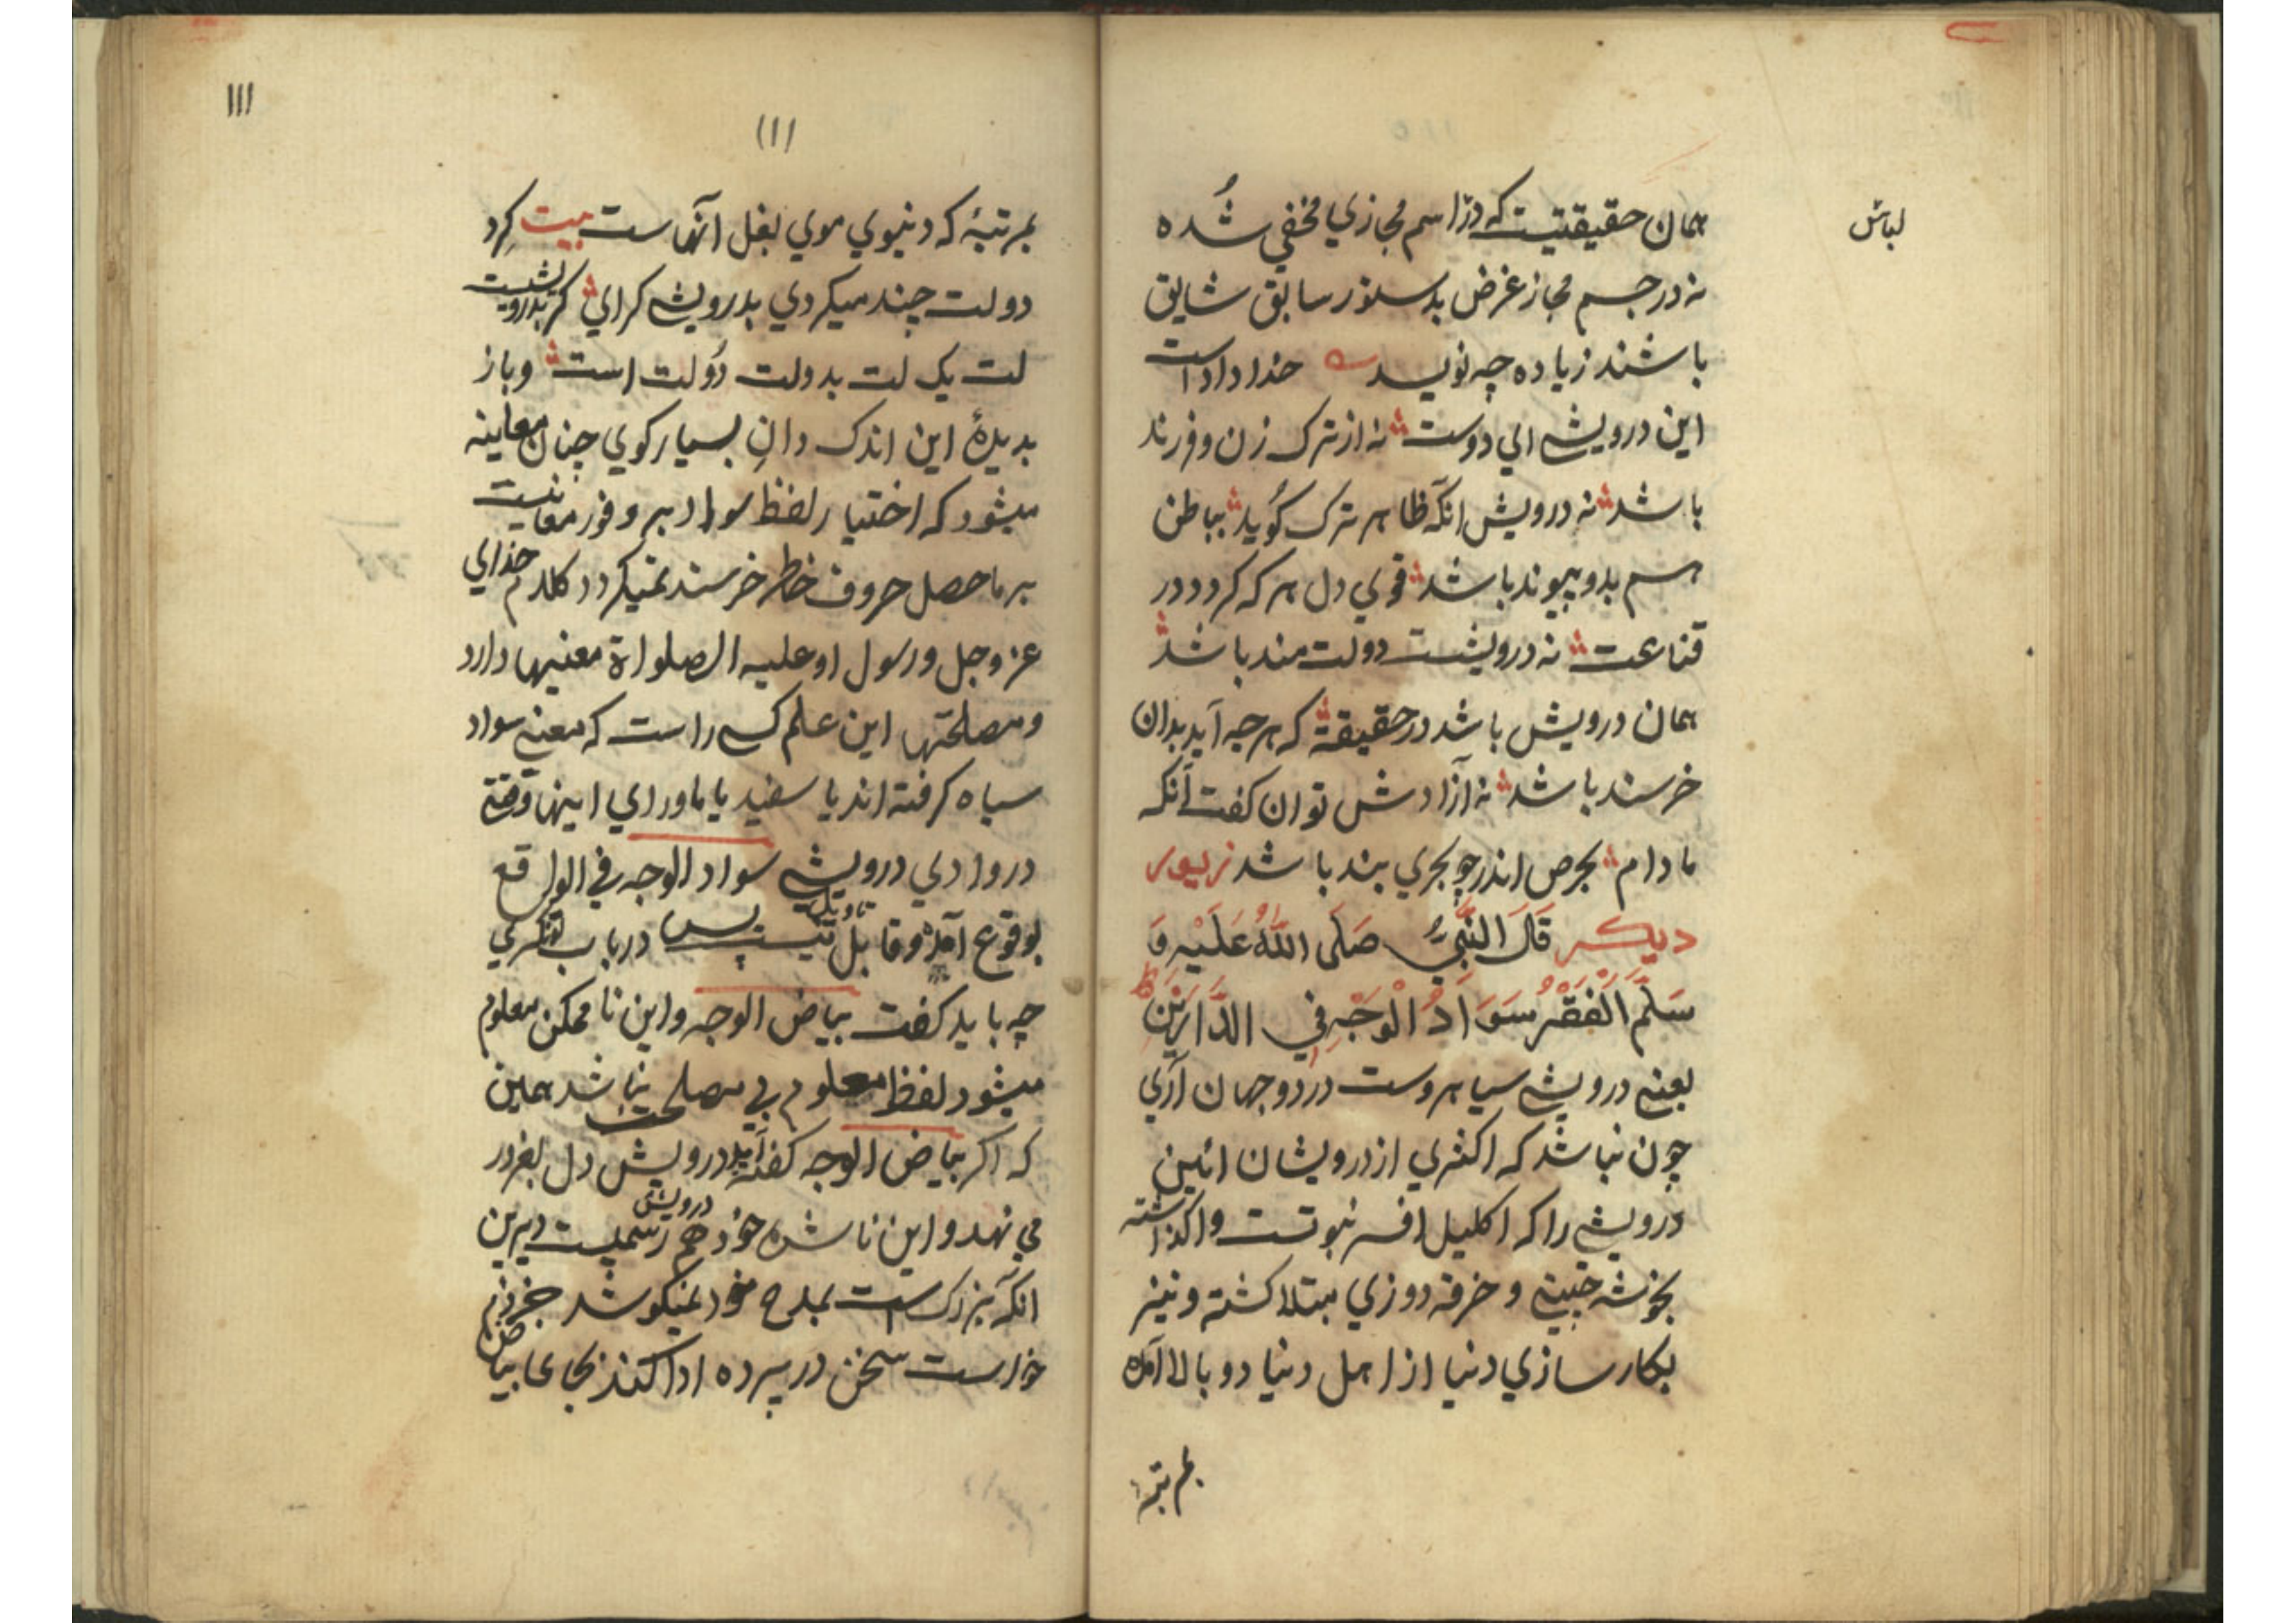 لباس
همان حقیقتیست که در اسم مجازي مخفي شُده
نه در جسم مجاز غرض بدستور سابق شایق
باشند زیاده چه نویسد خدا داد است
این درویشي اي دوست نه از ترک زن و فرزند
باشد نه درویش انکه ظاهر ترک کُوید بباطن
هم بدو پیوند باشد قوي دل هر که کردد در
قناعت نه درویشست دولت مند باشد
همان درویش باشد در حقیقة که هرچه آید بدان
خرسند باشد نه آزادش توان کفت آنکه
مادام بحرص اندر چو بحري بند باشد زیور
دیکر قَالَ النَّبِيُّ صَلَى اللَّهُ عَلَيْهِ وَ
سَلَّمَ اَلْفَقْرُ سَوَادُ الْوَجْهِ فِي الدَّارَيْنِ
یعني درویشي سیاه روست در دو جهان آري
چون نباشد که اکثري از درویشان ائین
درویشي را که اکلیل افسر نبوتست واکذاشته
بخوشه چیني و خرقه دوزي مبتلا کشته و نیز
بکارسازي دنیا از اهل دنیا دو بالا آمده
بمرتبهٔ
١١١
(١)
بمرتبهٔ که دنیوي موي بغل آنهاست بیت کرد
دولت چند میکردي بدرویشي کراي کر بدرویشیت
لت یک لت بدولت دَولت است و باز
بدیدهٔ این اندک دانِ بسیار کوي چنان معاینه
میشود که اختیار لفظ سواد بر وفور معانیست
بر ماحصل حروف خاطر خرسند نمیکردد کلام خداي
عز و جل و رسول او علیه الصلواة معنیها دارد
و مصلحتها این علم کسي راست که معني سواد
سیاه کرفته اند یا سفید یا ماوراي اینها وقتي
در وادي درویشي سواد الوجه في الواقع
بوقوع آمده و قابل تاویل نیست پس در باب تونکري
چه باید کفت بیاض الوجه و این نا ممکن معلوم
میشود لفظ معلوم بي مصلحت نباشد همین
که اکر بیاض الوجه کفته آید درویش دل بغرور
مي نهد و این ناشده خود هم درویش رسمیست دیرین
انکه بزرکست بمدح خود نمیکوشد
خواست سخن در پرده ادا کند بجای بیاض